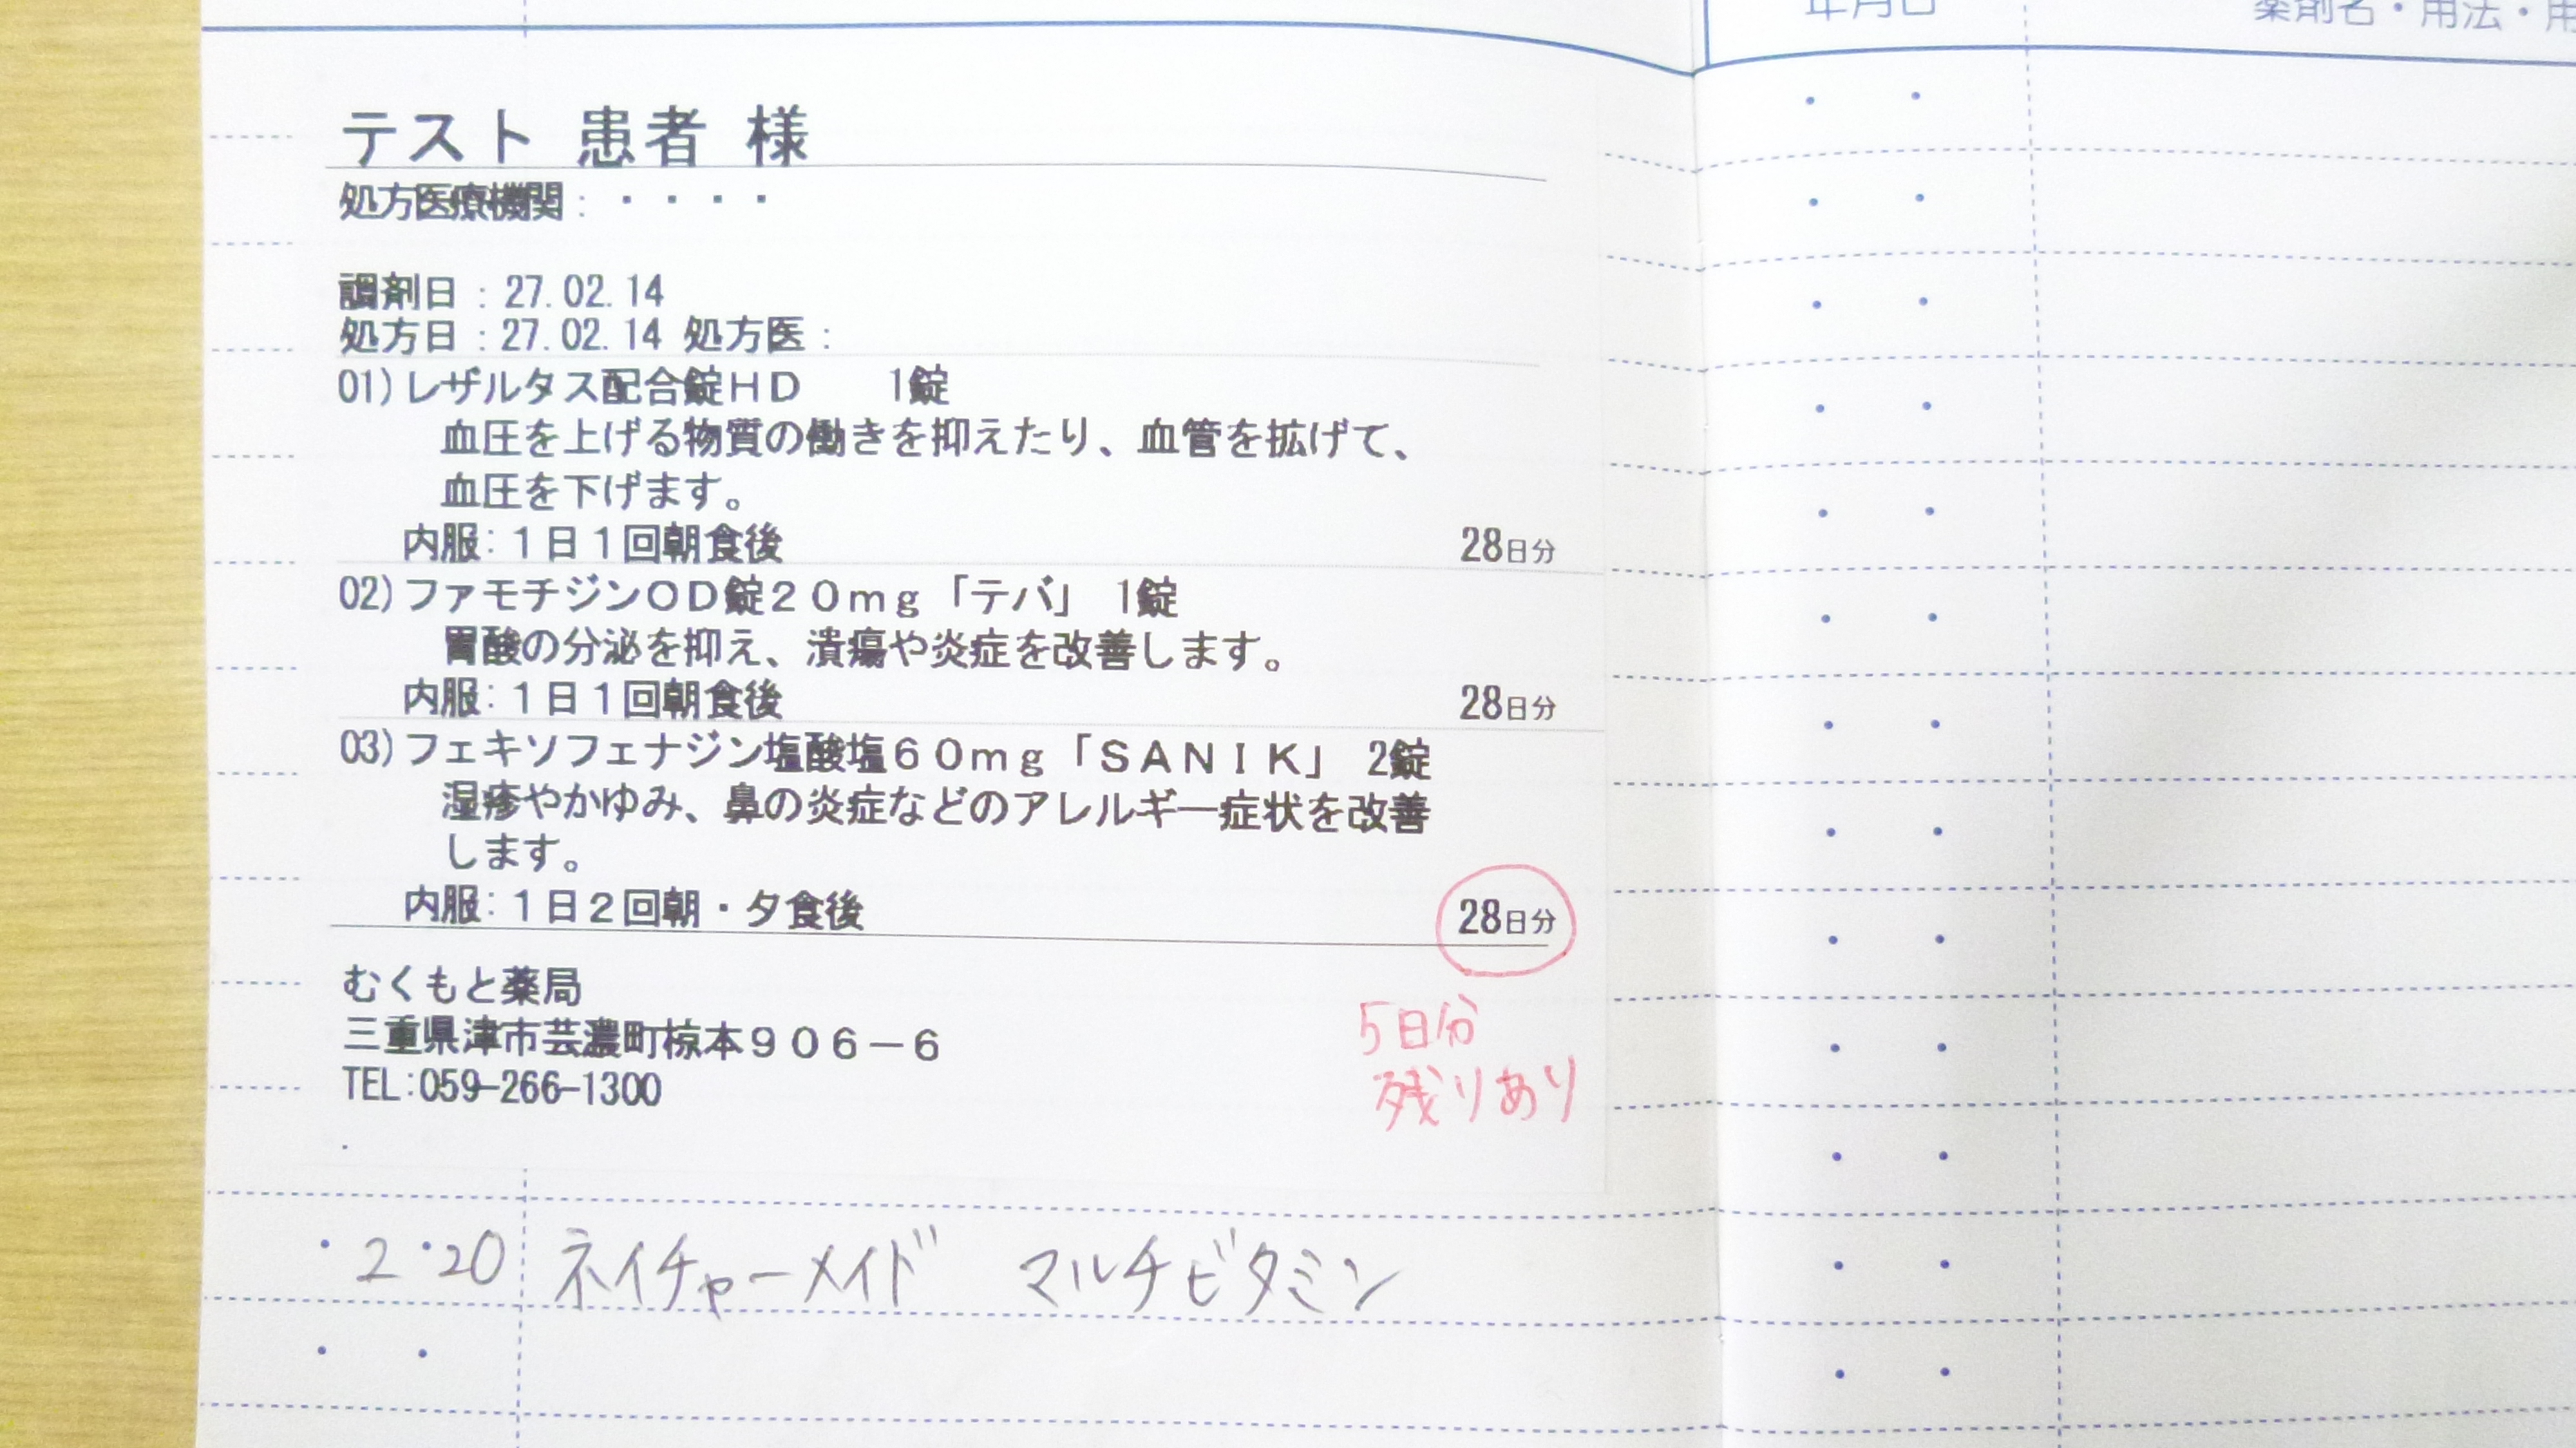 テスト 患者 様
処方医療機関：・・・・
調剤日：27.02.14
処方日：27.02.14 処方医：
01)レザルタス配合錠ＨＤ 1錠
血圧を上げる物質の働きを抑えたり、血管を拡げて、
血圧を下げます。
内服：１日１回朝食後 28日分
02)ファモチジンＯＤ錠２０ｍｇ「テバ」 1錠
胃酸の分泌を抑え、潰瘍や炎症を改善します。
内服：１日１回朝食後 28日分
03)フェキソフェナジン塩酸塩６０ｍｇ「ＳＡＮＩＫ」 2錠
湿疹やかゆみ、鼻の炎症などのアレルギー症状を改善
します。
内服：１日２回朝・夕食後 28日分
5日分
残りあり
むくもと薬局
三重県津市芸濃町椋本９０６－６
TEL:059-266-1300
・2・20 ネイチャーメイド マルチビタミン
年月日 薬剤名・用法・用